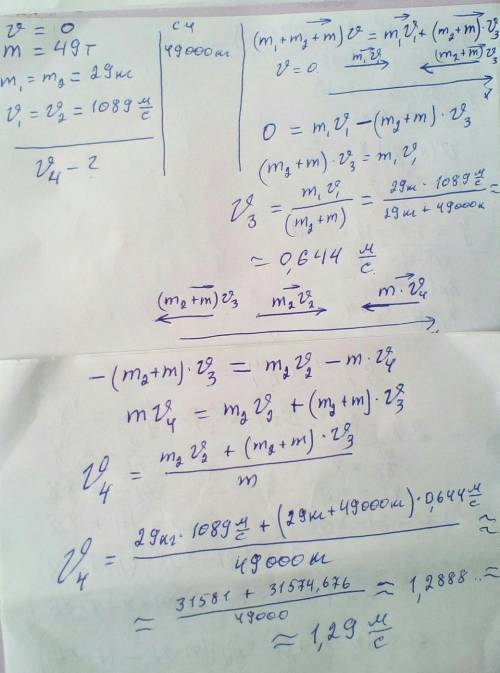 v = 0
m = 49т
m₁ = m₂ = 29кг
v₁ = v₂ = 1089 м/с
v₄ - ?
СИ
49000кг
(m₁+m₂+m)v = m₁v₁ + (m₂+m)·v₃
v = 0. m₁v₁ (m₂+m)v₃
0 = m₁v₁ - (m₂+m)·v₃
(m₂+m)·v₃ = m₁v₁
v₃ = m₁v₁/(m₂+m) = 29кг·1089 м/с / 29кг+49000кг ≈
≈ 0,644 м/с
(m₂+m)v₃ m₂v₂ m·v₄
-(m₂+m)·v₃ = m₂v₂ - m·v₄
mv₄ = m₂v₂ + (m₂+m)·v₃
v₄ = m₂v₂ + (m₂+m)·v₃ / m
v₄ = 29кг·1089 м/с + (29кг+49000кг)·0,644 м/с / 49000кг ≈
≈ 31581 + 31574,676 / 49000 ≈ 1,2888 ≈
≈ 1,29 м/с